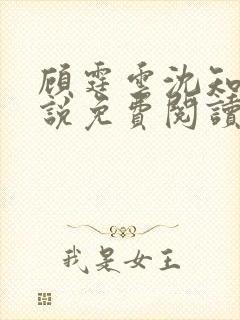 顾霆雲沈知
說免費閱讀
我是女王